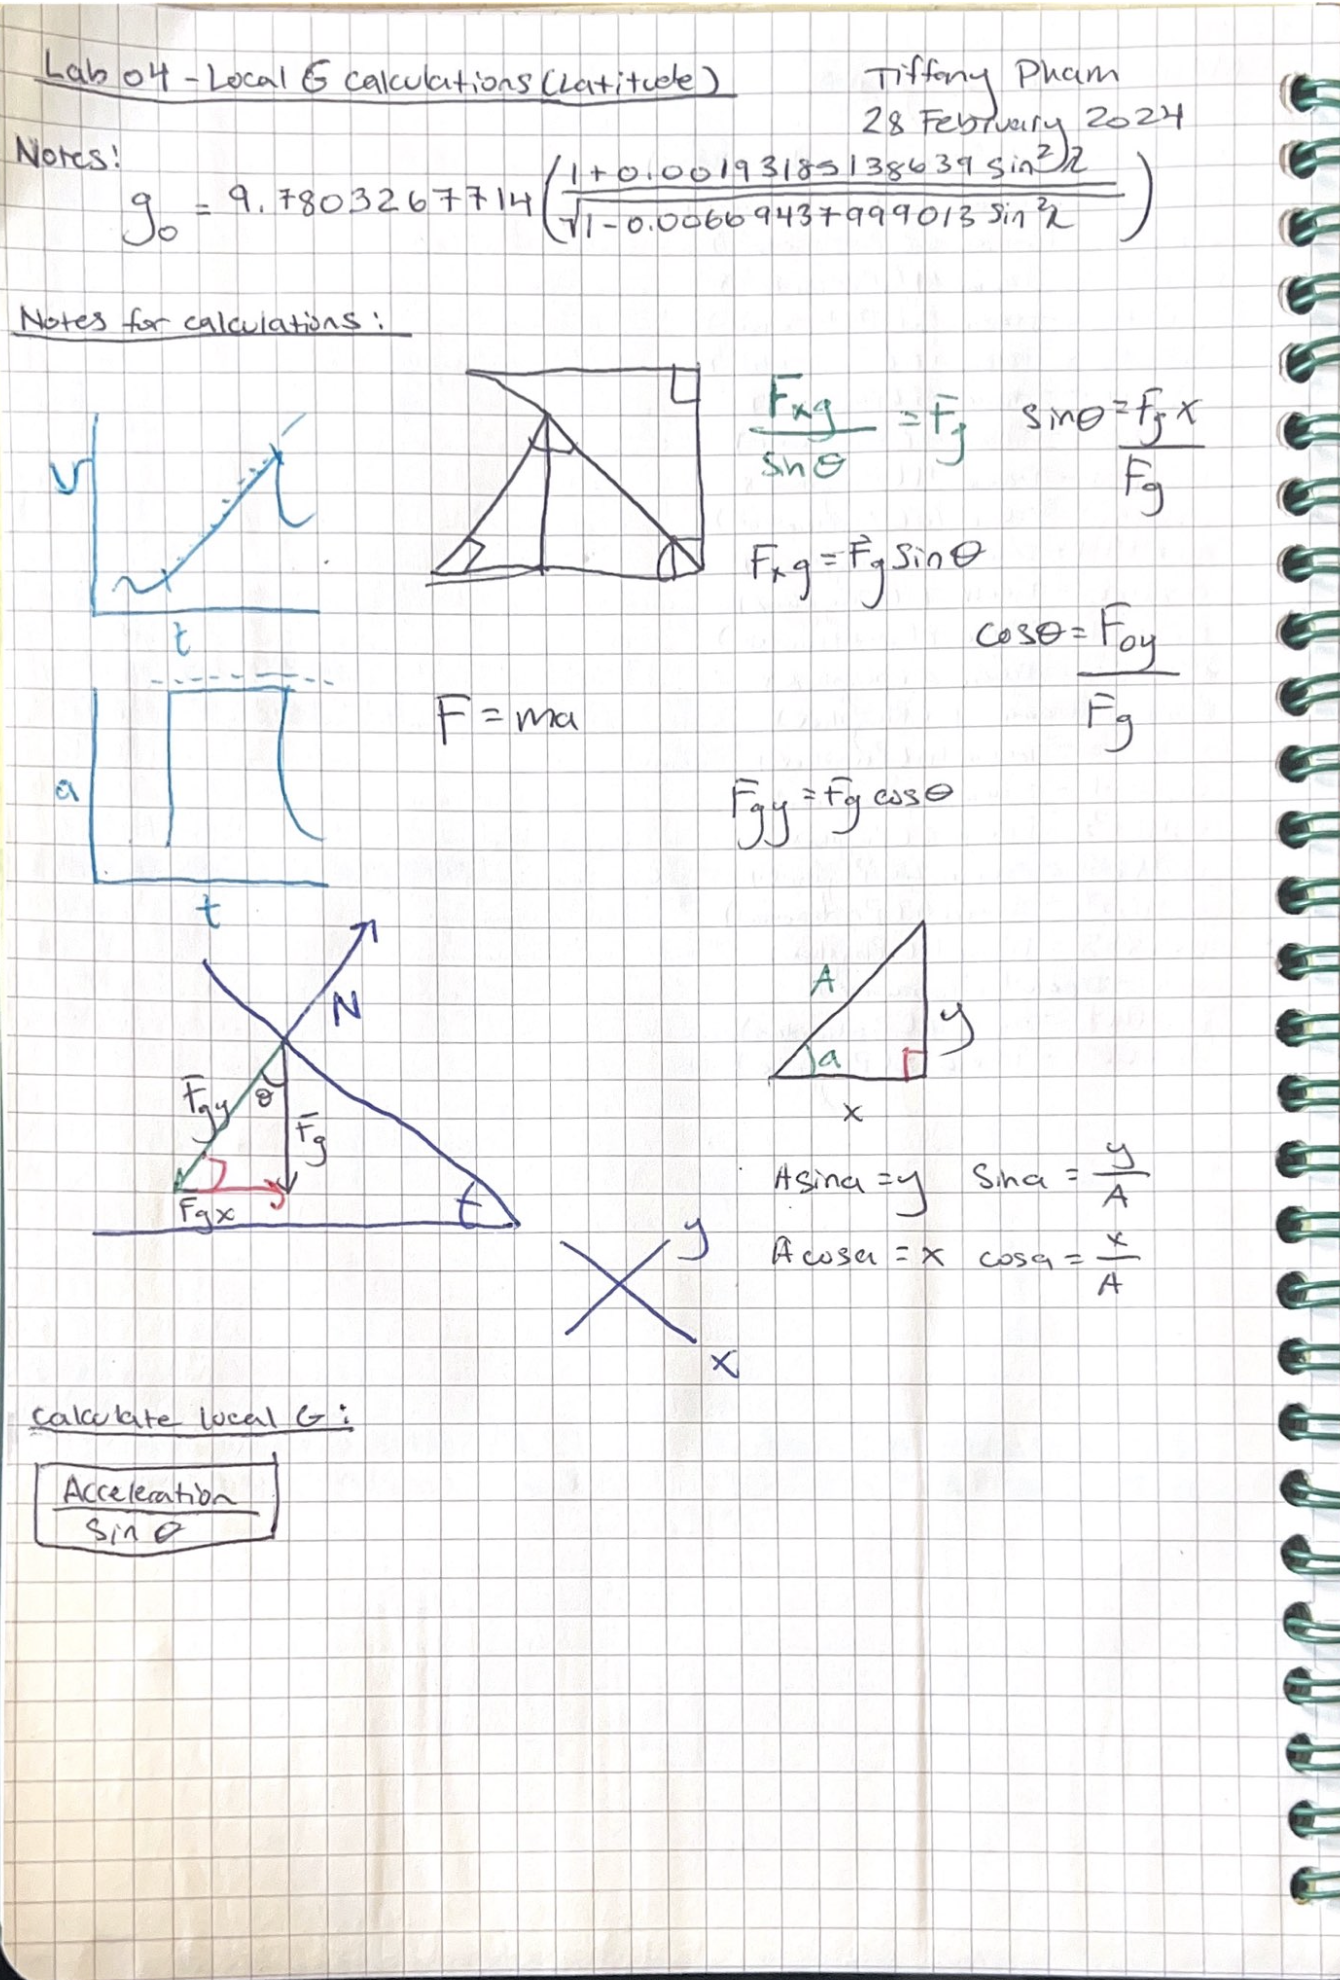 Lab 04 - Local G calculations (Latitude)
Tiffany Pham
28 February 2024
Notes:
g₀ = 9.7803267714 (1+0.00193185138639 sin²λ / √1-0.00669437999013 sin²λ)
Notes for calculations:
v
t
Fxg / sinθ = Fg
sinθ = Fgx / Fg
Fxg = Fg sinθ
cosθ = Fgy / Fg
F = ma
a
Fgy = Fg cosθ
t
N
Fgy
θ
Fg
Fgx
A
y
a
x
A sin a = y
sin a = y / A
y
A cos a = x
cos a = x / A
x
Calculate local G:
Acceleration
sin θ